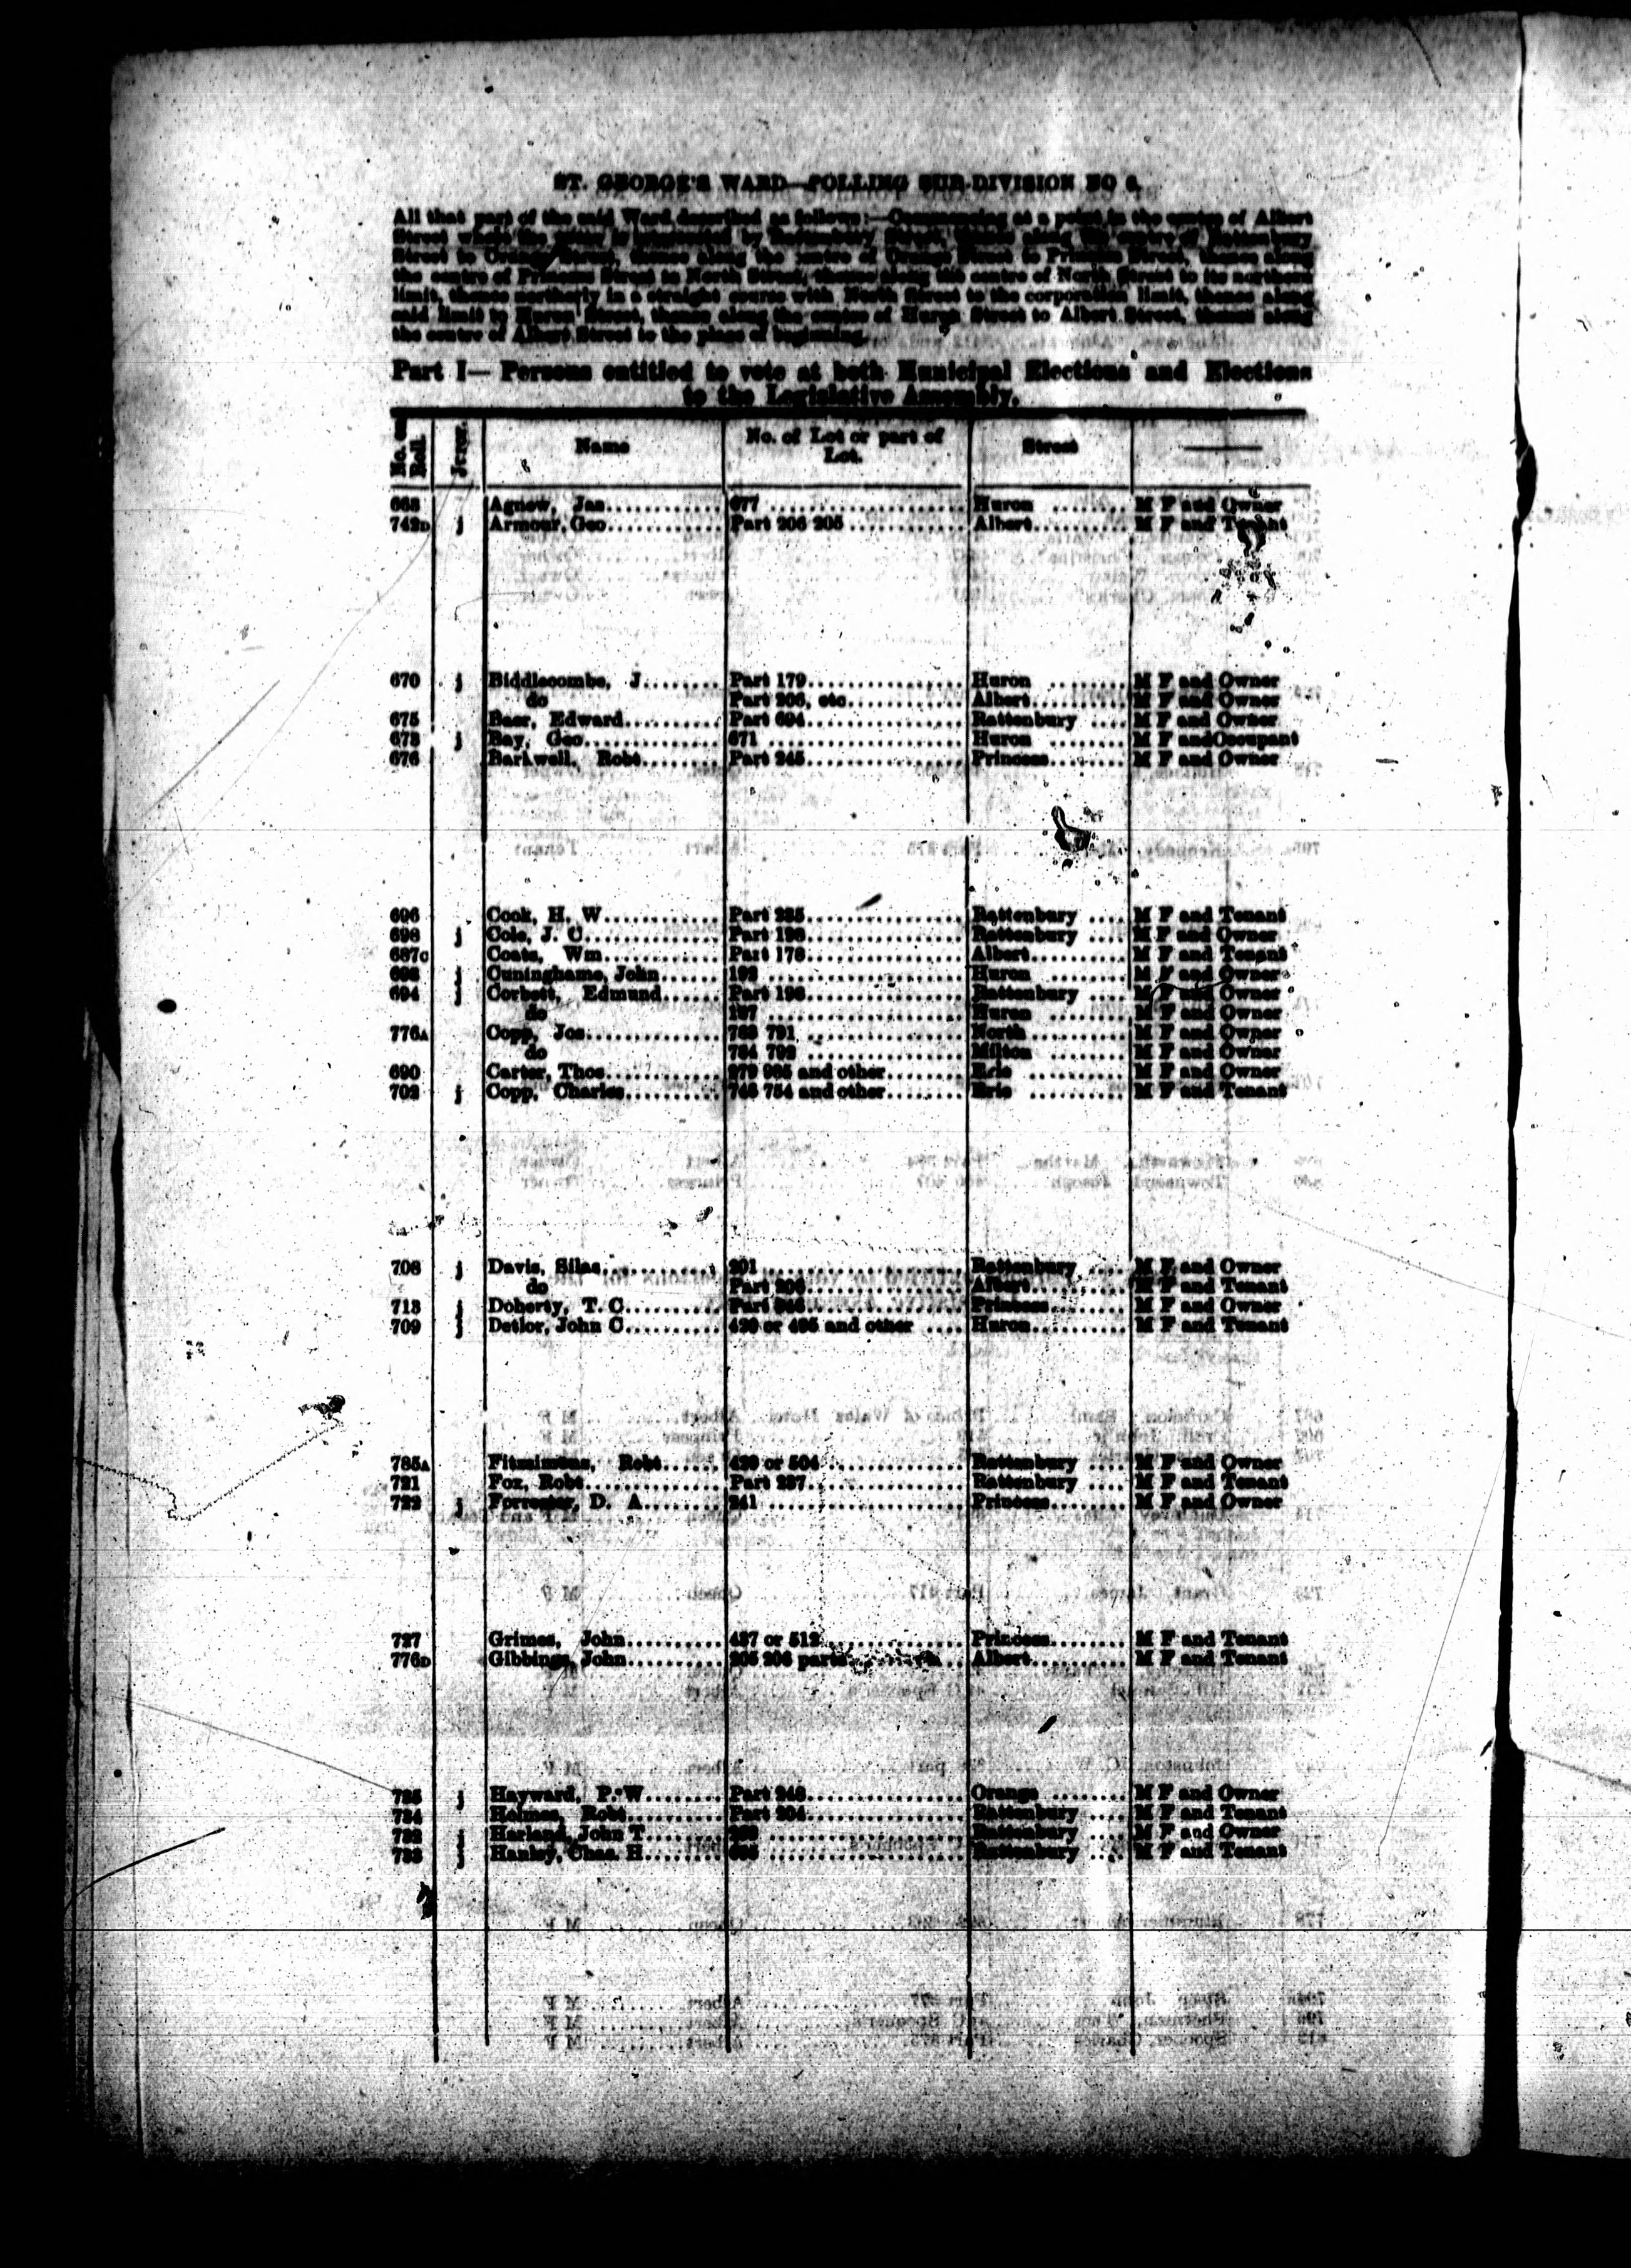 ST. GEORGE'S WARD—POLLING SUB-DIVISION NO 6.
All that part of the said Ward described as follows:—Commencing at a point in the centre of Albert
Street to Orange Street, thence along the centre of Orange Street to Princess Street, thence along
the centre of Princess Street to North Street, thence along the centre of North Street to its northern
limit, thence northerly in a straight course with North Street to the corporation limit, thence along
said limit to Huron Street, thence along the centre of Huron Street to Albert Street, thence along
the centre of Albert Street to the place of beginning.
Part I— Persons entitled to vote at both Municipal Elections and Elections
to the Legislative Assembly.
No. on Roll. Juror. Name No. of Lot or part of Lot. Street
Agnew, Jas 677 Huron M F and Owner
742D j Armour, Geo Part 206 205 Albert M F and Tenant
670 j Biddlecombe, J Part 179 Huron M F and Owner
do Part 206, etc Albert M F and Owner
675 Baer, Edward Part 694 Rattenbury M F and Owner
673 j Bay, Geo 671 Huron M F and Occupant
676 Barkwell, Robt Part 245 Princess M F and Owner
696 Cook, H. W Part 235 Rattenbury M F and Tenant
698 j Cole, J. C Part 198 Rattenbury M F and Owner
687C Coats, Wm Part 178 Albert M F and Tenant
j Cuninghame, John 192 Huron M F and Owner
694 j Corbett, Edmund Part 196 Rattenbury M F and Owner
do 197 Huron M F and Owner
776A Copp, Jos 783 791 North M F and Owner
do 784 792 Milton M F and Owner
690 Carter, Thos and other Erie M F and Owner
702 j Copp, Charles 746 754 and other Erie M F and Tenant
708 j Davis, Silas 201 Rattenbury M F and Owner
do Part 206 Albert M F and Tenant
713 j Doherty, T. C Part Princess M F and Owner
709 j Detlor, John C or 495 and other Huron M F and Tenant
785A Fitzsimons, Robt 429 or 504 Rattenbury M F and Owner
721 Fox, Robt Part 237 Rattenbury M F and Tenant
722 j Forrester, D. A 241 Princess M F and Owner
727 Grimes, John 437 or 512 Princess M F and Tenant
776D Gibbings, John 205 206 parts Albert M F and Tenant
735 j Hayward, P. W Part 248 Orange M F and Owner
734 Holmes, Robt Part 204 Rattenbury M F and Tenant
732 j Harland, John T Rattenbury M F and Owner
733 j Hanley, Chas. H 695 Rattenbury M F and Tenant